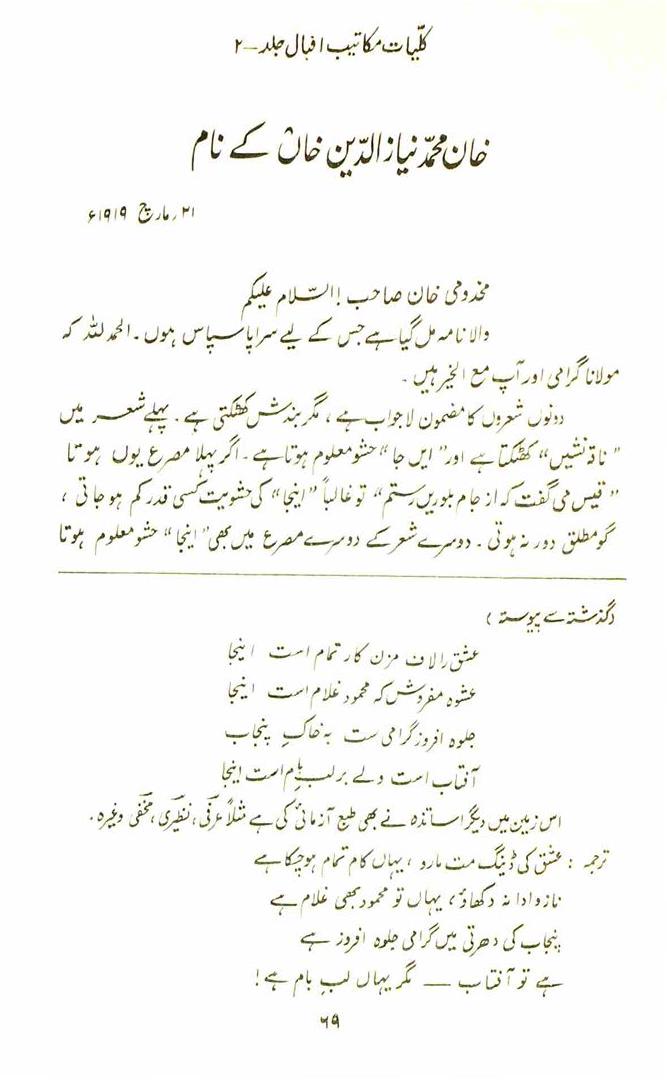 کلّیات مکاتیب اقبال جلد -۲
خان محمّد نیاز الدّین خاںؒ کے نام
۲۱ ر مارچ ۱۹۱۹ء
مخدومی خان صاحب! السّلام علیکم
والا نامہ مل گیا ہے جس کے لیے سراپا سپاس ہوں۔ الحمد للّٰہ کہ
مولانا گرامی اور آپ مع الخیر ہیں۔
دونوں شعروں کا مضمون لا جواب ہے، مگر بندش کھٹکتی ہے۔ پہلے شعر میں
"ناقہ نشیں" کھٹکتا ہے اور "ایں جا" حشو معلوم ہوتا ہے۔ اگر پہلا مصرع یوں ہوتا
"قیس می گفت کہ از جام بلوریں رستم" تو غالباً "اینجا" کی حشویت کسی قدر کم ہو جاتی،
گو مطلق دور نہ ہوتی۔ دوسرے شعر کے دوسرے مصرع میں بھی "اینجا" حشو معلوم ہوتا
(گذشتہ سے پیوستہ)
عشق را لاف مزن کار تمام است اینجا
عشوہ مفروش کہ محمود غلام است اینجا
جلوہ افروز گرامی ست بہ خاکِ پنجاب
آفتاب است ولے بر لبِ بام است اینجا
اس زمین میں دیگر اساتذہ نے بھی طبع آزمائی کی ہے مثلاً عرفی، نظیری، مخفی وغیرہ۔
ترجمہ: عشق کی ڈینگ مت مارو، یہاں کام تمام ہو چکا ہے
ناز و ادا نہ دکھاؤ، یہاں تو محمود بھی غلام ہے
پنجاب کی دھرتی میں گرامی جلوہ افروز ہے
ہے تو آفتاب — مگر یہاں لبِ بام ہے!
۶۹